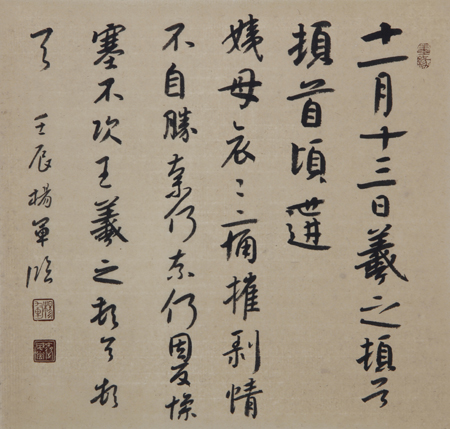 十一月十三日羲之頓首
頓首頃遘
姨母哀〻痛摧剥情
不自勝奈何奈何因反慘
塞不次王羲之頓首頓
首 壬辰楊軍臨